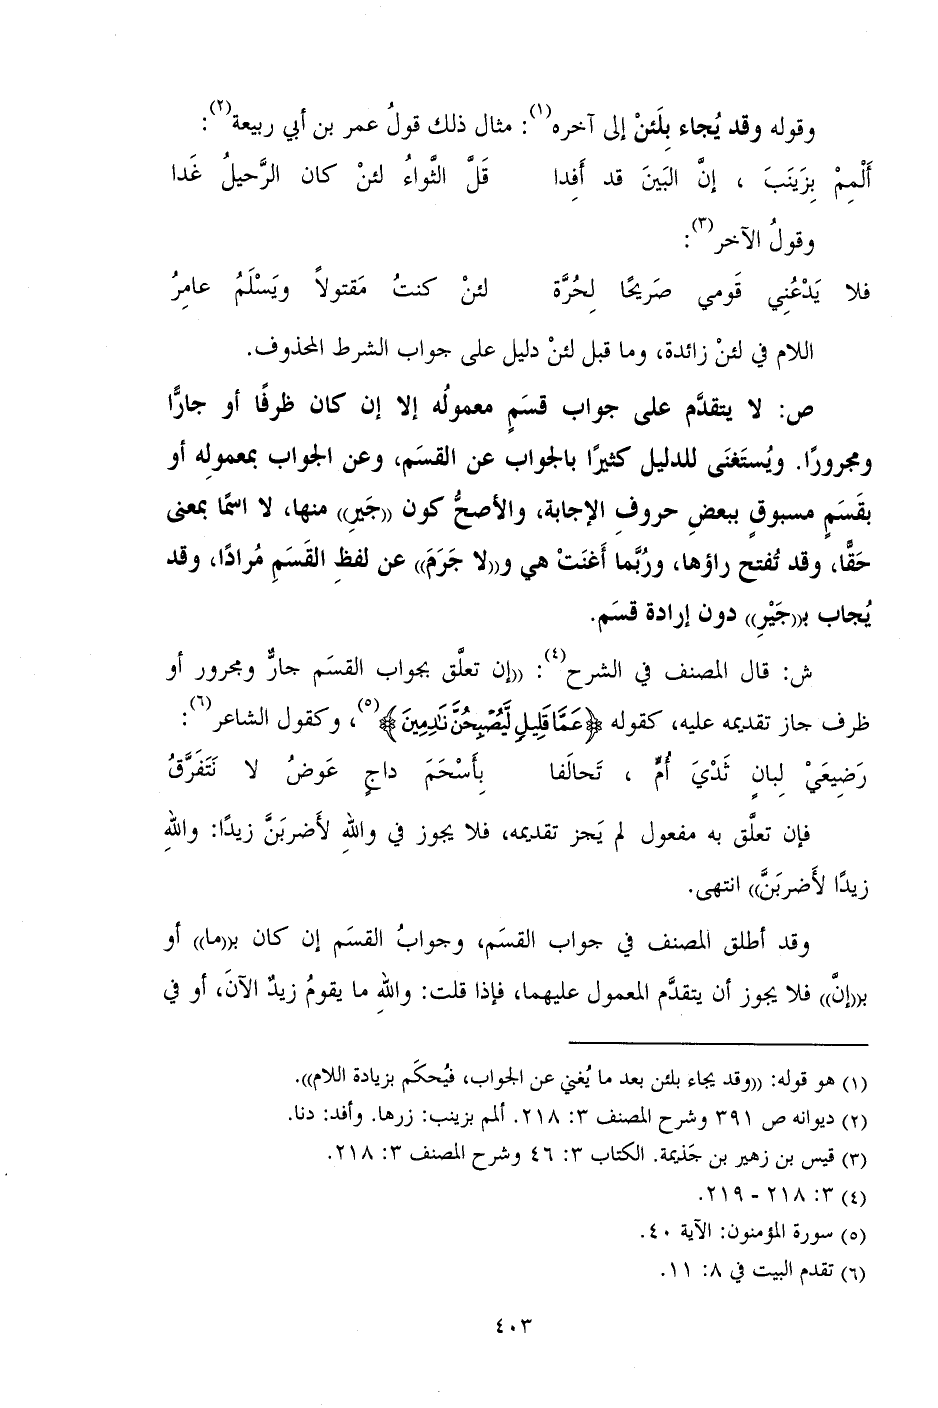 وقوله وقد يُجاء بِلَئنْ إلى آخره(١): مثال ذلك قولُ عمر بن أبي ربيعة(٢):
أَلْمِمْ بِزَينَبَ ، إنَّ البَينَ قد أَفِدا    قَلَّ الثَّواءُ لئنْ كان الرَّحيلُ غَدا
وقولُ الآخر(٣):
فلا يَدْعُنِي قَومي صَرِيحًا لِحُرَّة    لئنْ كنتُ مَقتولاً ويَسْلَمُ عامِرُ
اللام في لئنْ زائدة، وما قبل لئنْ دليل على جواب الشرط المحذوف.
ص: لا يتقدَّم على جواب قسَمٍ معمولُه إلا إن كان ظرفًا أو جارًّا
ومجرورًا. ويُستَغنَى للدليل كثيرًا بالجواب عن القسَم، وعن الجواب بمعمولِه أو
بقَسَمٍ مسبوقٍ ببعضِ حروفِ الإجابة، والأصحُّ كون ((جَيرِ)) منها، لا اسمًا بمعنى
حَقًّا، وقد تُفتح راؤها، ورُبَّما أَغنَتْ هي و((لا جَرَمَ)) عن لفظِ القَسَمِ مُرادًا، وقد
يُجاب بـ((جَيْرِ)) دون إرادة قسَم.
ش: قال المصنف في الشرح(٤): ((إن تعلَّق بجواب القسَم جارٌّ ومجرور أو
ظرف جاز تقديمه عليه، كقوله ﴿عَمَّا قَلِيلٍ لَّيُصْبِحُنَّ نَٰدِمِينَ﴾(٥)، وكقول الشاعر(٦):
رَضِيعَيْ لِبانٍ ثَدْيَ أُمٍّ ، تَحالَفا    بِأَسْحَمَ داجٍ عَوضُ لا نَتَفَرَّقُ
فإن تعلَّق به مفعول لم يَجز تقديمه، فلا يجوز في واللهِ لأَضربَنَّ زيدًا: واللهِ
زيدًا لأَضربَنَّ)) انتهى.
وقد أطلق المصنف في جواب القسَم، وجوابُ القسَم إن كان بـ((ما)) أو
بـ((إنَّ)) فلا يجوز أن يتقدَّم المعمول عليهما، فإذا قلت: واللهِ ما يقومُ زيدٌ الآنَ، أو في
(١) هو قوله: ((وقد يجاء بلئن بعد ما يُغني عن الجواب، فيُحكَم بزيادة اللام)).
(٢) ديوانه ص ٣٩١ وشرح المصنف ٣: ٢١٨. ألمم بزينب: زرها. وأفد: دنا.
(٣) قيس بن زهير بن جَذيمة. الكتاب ٣: ٤٦ وشرح المصنف ٣: ٢١٨.
(٤) ٣: ٢١٨ - ٢١٩.
(٥) سورة المؤمنون: الآية ٤٠.
(٦) تقدم البيت في ٨: ١١.
٤٠٣